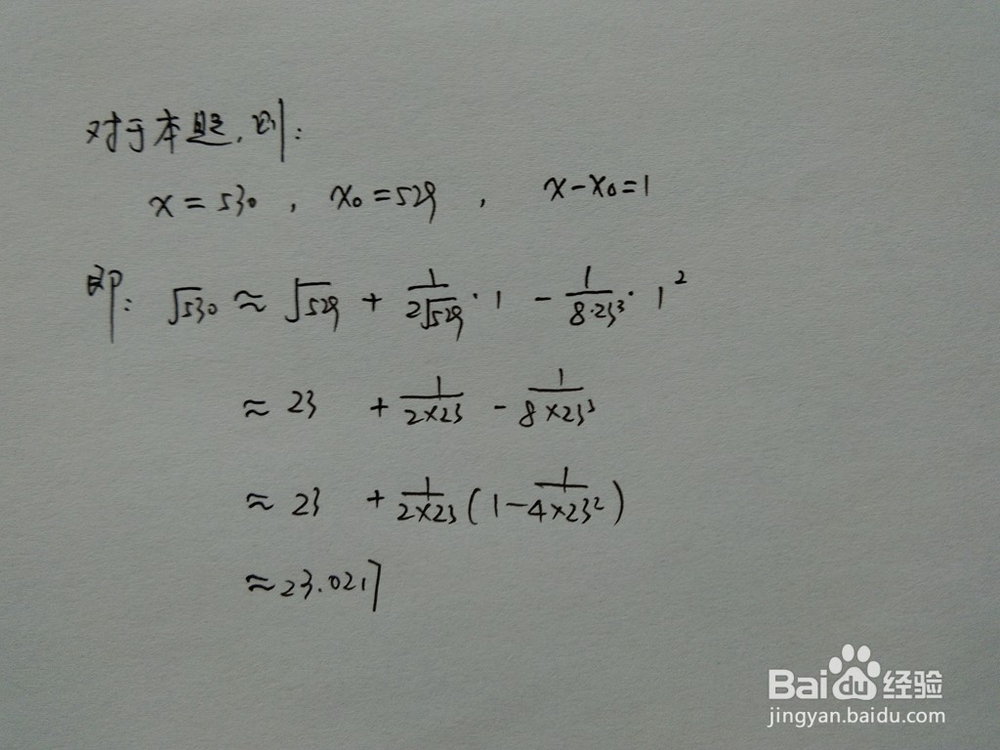 对于本题,则:
x=530, x₀=529, x-x₀=1
即: √530 ≈ √529 + 1/(2√529)·1 - 1/(8·23³)·1²
≈ 23 + 1/(2×23) - 1/(8×23³)
≈ 23 + 1/(2×23) (1 - 1/(4×23²))
≈23.0217
Baidu经验
jingyan.baidu.com